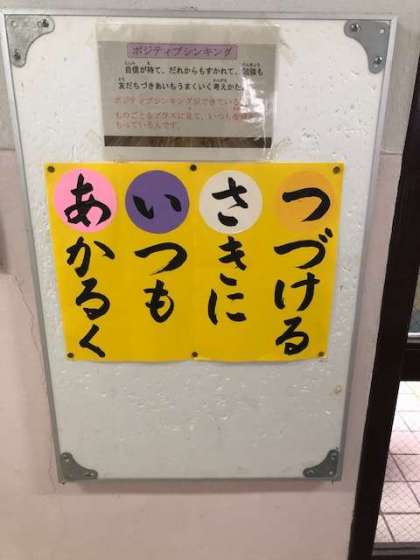 ポジティブシンキング
自信が持て、だれからもすかれて、勉強も
友だちづきあいもうまくいく考えかた。
ポジティブシンキングができている
ものごとをプラスに見て、いつも
もっている人です。
あかるく
いつも
さきに
つづける